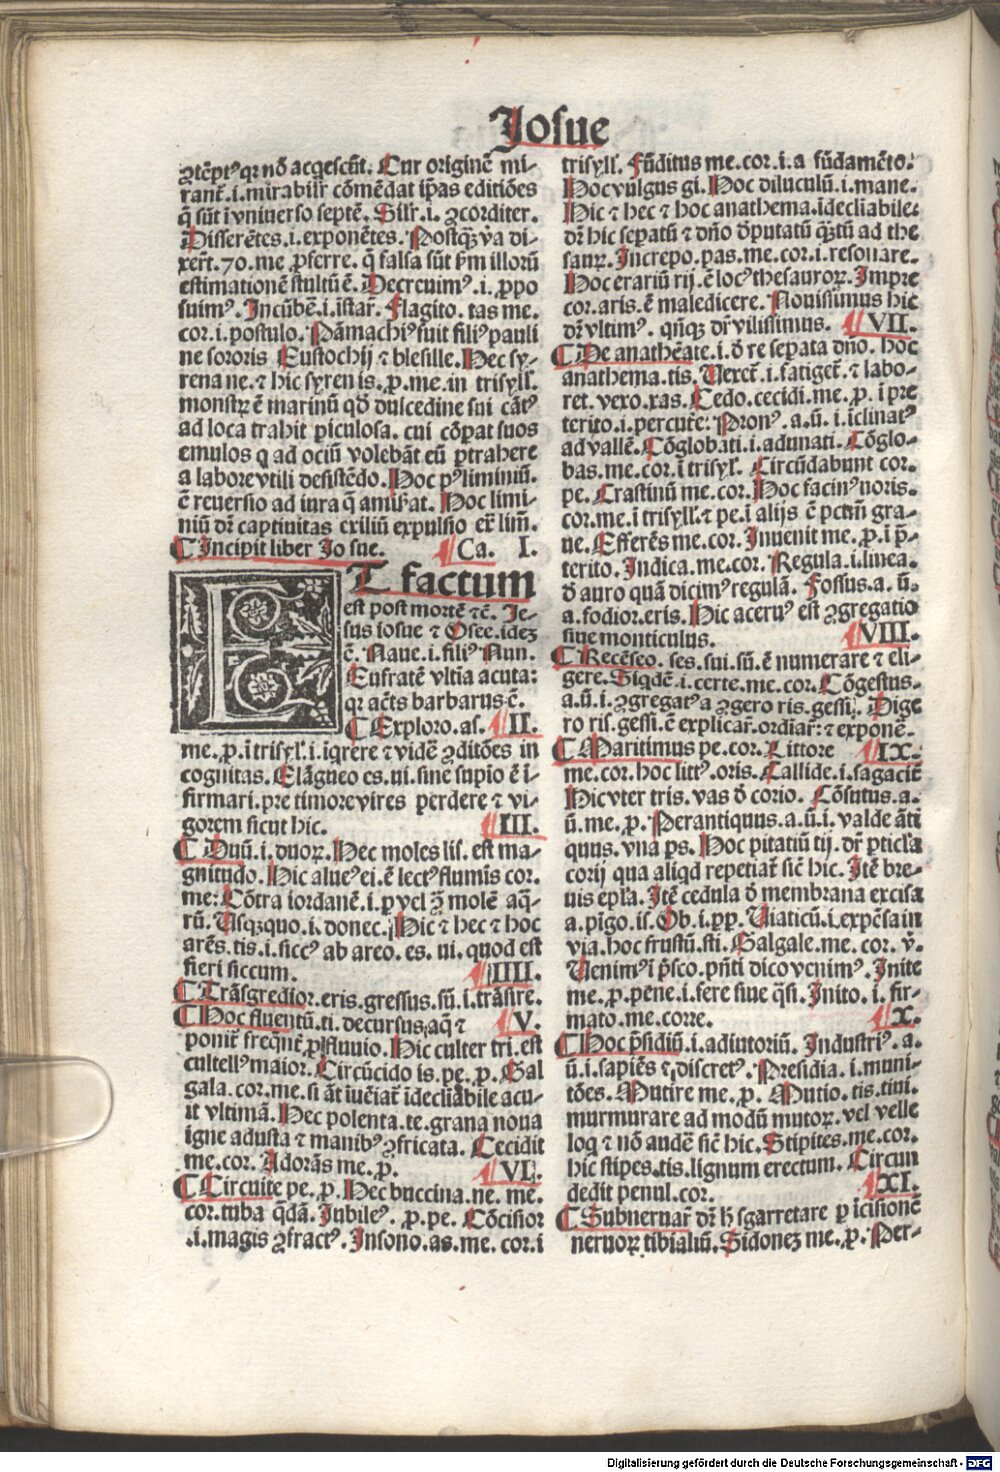 Iosue
ꝯtẽptꝰ qꝛ nõ acqescũt. Cur originẽ mi-
rant̃. i. mirabilr̃ cõmẽdat ip̃as editiões
q̃ sũt i vniuerso septẽ. Silr̃. i. ꝯcorditer.
Disserẽtes. i. exponẽtes. Postq̃ꝫ v̾a di-
xer̃t. 70. me ꝓferre. q̃ falsa sũt p̃m illorũ
estimationẽ stultũ ẽ. Decreuimꝰ. i. ꝓpo
suimꝰ. Incũbẽ. i. istar̃. Flagito. tas me.
cor. i. postulo. Pãmachiꝰ fuit filiꝰ pauli
ne sororis Eustochij ⁊ blesille. Hec sy-
rena ne. ⁊ hic syren is. ꝓ. me. in trisyll̃.
monstrꝫ ẽ marinũ qđ dulcedine sui cãtꝰ
ad loca trahit piculosa. cui cõpat suos
emulos q ad ociũ volebãt eũ ꝑtrahere
a labore vtili desistẽdo. Hoc pꝰliminiũ.
ẽ reuersio ad iura q̃ amis̃at. Hoc limi-
niũ dr̃ captiuitas exiliũ expulsio ex̃ lim̃.
¶ Incipit liber Io sue. ¶ Ca. I.
ET factum
est post mortẽ ⁊c̃. Ie-
sus iosue ⁊ Osee. ideꝫ
ẽ. Naue. i. filiꝰ Nun.
Eufratẽ vltĩa acuta:
qꝛ acẽts barbarus. ẽ.
¶ Exploro. as. ¶ II.
me. ꝓ. ĩ trisyl̃. i. iq̃rere ⁊ vidẽ ꝯditões in
cognitas. Elãgueo es. ui. sine supio ẽ ĩ-
firmari. pre timore vires perdere ⁊ vi-
gorem sicut hic. ¶ III.
¶ Duũ. i. duoꝝ. Hec moles lis. est ma-
gnitudo. Hic alueꝰ ei. ẽ lectꝰ flumĩs cor.
me: Cõtra iordanẽ. i. ꝑ vel ꝯ̃ molẽ aq̃-
rũ. Usqꝫquo. i. donec. Hic ⁊ hec ⁊ hoc
arẽs. tis. i. siccꝰ ab areo. es. ui. quod est
fieri siccum. ¶ IIII.
¶ Trãsgredior. eris. gressus. sũ. i. trãsire.
¶ Hoc fluentũ. ti. decursus aq̃ ⁊ ¶ V.
ponit̃ freq̃nt̃ ꝓ fluuio. Hic culter tri. est
cultellꝰ maior. Circũcido is. pe. ꝓ. Gal
gala. cor. me. si ãt iuẽiat̃ ĩdecliãbile acu-
it vltimã. Hec polenta. te. grana noua
igne adusta ⁊ manibꝰ ꝯfricata. Cecidit
me. cor. Adorãs me. ꝓ. ¶ VI.
¶ Circuite pe. ꝓ. Hec buccina. ne. me.
cor. tuba q̃dã. Iubileꝰ. ꝓ. pe. Cõcisior
.i. magis ꝯfractꝰ. Insono. as. me. cor. i
trisyll̃. Fũditus me. cor. i. a fũdamẽto.
Hoc vulgus gi. Hoc diluculũ. i. mane.
Hic ⁊ hec ⁊ hoc anathema. ĩdecliãbile:
dr̃ hic sepatũ ⁊ dño đputatũ q̃ꝫtũ ad the
saurꝫ. Increpo. pas. me. cor. i. resonare.
Hoc erariũ rij. ẽ locꝰ thesauroꝝ. Impre
cor. aris. ẽ maledicere. Nouissimus hic
dr̃ vltimꝰ. qñqꝫ dr̃ vilissimus. ¶ VII.
¶ De anathẽate. i. đ re sepata dño. hoc
anathema. tis. Uexet̃. i. fatiget̃. ⁊ labo-
ret. vexo. xas. Cedo. cecidi. me. ꝓ. i pre
terito. i. percute: Pronꝰ. a. ũ. i. iclinatꝰ
ad vallẽ. Cõglobati. i. adunati. Cõglo-
bas. me. cor. ĩ trisyl̃. Circũdabunt cor.
pe. Crastinũ me. cor. Hoc facinꝰ noris.
cor. me. i trisyll̃. ⁊ pe. i alijs ẽ pctm̃ gra-
ue. Efferẽs me. cor. Inuenit me. ꝓ. i p̃-
terito. Indica. me. cor. Regula. i. linea.
đ auro quã dicimꝰ regulã. Fossus. a. ũ.
a. fodior. eris. Hic aceruꝰ est ꝯgregatio
siue monticulus. ¶ VIII.
¶ Recẽseo. ses. sui. sũ. ẽ numerare ⁊ eli-
gere. Siqdẽ. i. certe. me. cor. Cõgestus.
a. ũ. i. ꝯgregatꝰ a ꝯgero ris. gessi. Dige
ro ris. gessi. ẽ explicar̃. ordĩar̃: ⁊ exponẽ.
¶ Maritimus pe. cor. Littore ¶ IX.
me. cor. hoc littꝰ. oris. Callide. i. sagacit̃
Hic vter tris. vas đ corio. Cõsutus. a.
ũ. me. ꝓ. Perantiquus. a. ũ. i. valde ãti
quus. vna ꝑs. Hoc pitatiũ tij. dr̃ pticl̃a
corij qua aliqđ repetiat̃ sic̃ hic. Itẽ bre-
uis epl̃a. Itẽ cedula đ membrana excisa
a. pigo. is. Ob. i. ꝓp. Uiaticũ. i. expẽsa in
via. hoc frustũ. sti. Galgale. me. cor. v̾.
Uenimꝰ i p̃sco. pñti dico venimꝰ. Inite
me. ꝓ. pene. i. fere siue q̃si. Inito. i. fir-
mato. me. corre. ¶ X.
¶ Hoc p̃sidiũ. i. adiutoriũ. Industriꝰ. a.
ũ. i. sapiẽs ⁊ discretꝰ. Presidia. i. muni-
tões. Mutire me. ꝓ. Mutio. tis. tiui.
murmurare ad modũ mutoꝝ. vel velle
loq ⁊ nõ audẽ sic̃ hic. Stipites. me. cor.
hic stipes. tis. lignum erectum. Circun
dedit penul. cor. ¶ XI.
¶ Subneruar̃ dr̃ h̃ sgarretare ꝑ icisionẽ
neruoꝝ tibialiũ. Sidoneꝫ me. ꝓ. Per-
Digitalisierung gefördert durch die Deutsche Forschungsgemeinschaft - DFG